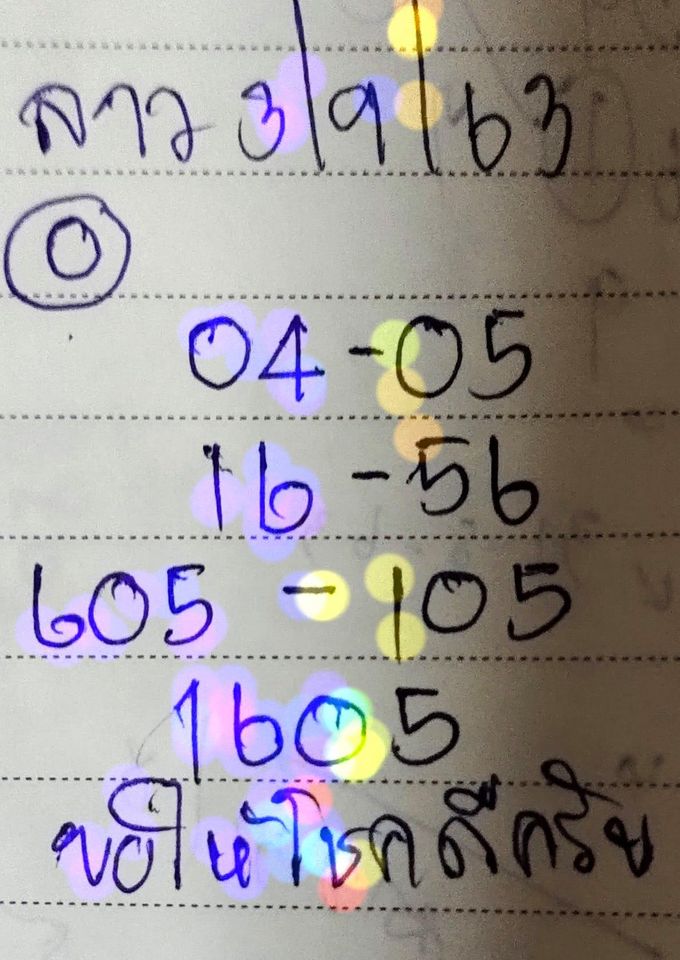 ลาว 3/9/63
0
04-05
16-56
605-105
1605
ขอให้โชคดีครับ